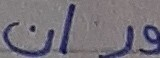 ور ان